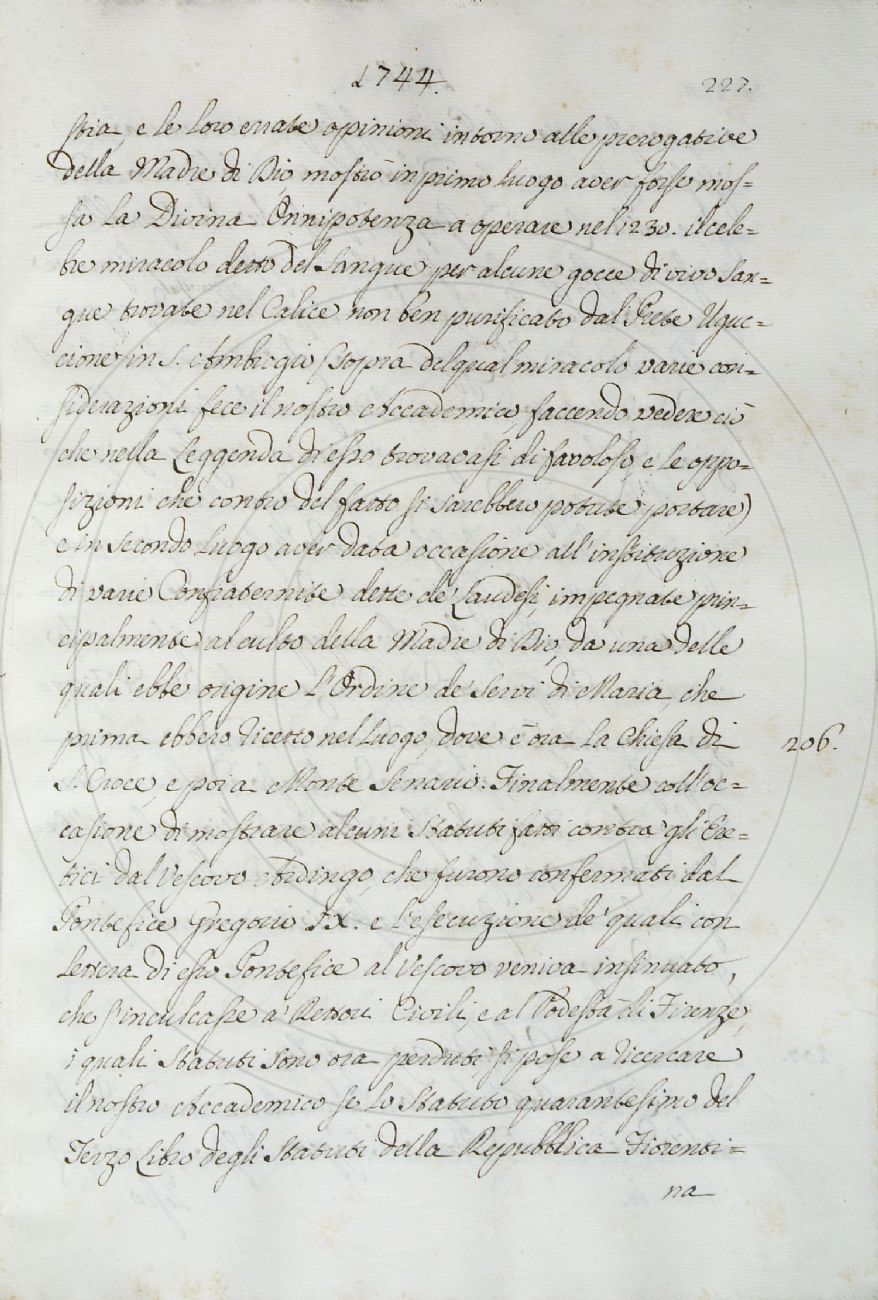 1744.
227.
stia, e le loro errate opinioni intorno alle prerogative
della Madre di Dio, mostrò in primo luogo aver forse mos=
sa la Divina Onnipotenza a operare nel 1230. il cele=
bre miracolo detto del Sangue per alcune gocce di vivo San=
gue trovate nel Calice non ben purificato dal Prete Uguc=
cione in S. Ambrogio (sopra del qual miracolo varie con=
siderazioni fece il nostro Accademico, faccendo vedere ciò
che nella Leggenda di esso trovavasi di favoloso, e le oppo=
sizioni che contro del fatto si sarebbero potute portare)
e in secondo luogo aver data occasione all'instituzione
di varie Confraternite dette de' Laudesi, impegnate prin=
cipalmente al culto della Madre di Dio, da una delle
quali ebbe origine l'Ordine de' Servi di Maria, che
prima ebbero ricetto nel luogo, dove è ora la Chiesa di
206.
S. Croce, e poi a Monte Senario. Finalmente coll'oc=
casione di mostrare alcuni Statuti fatti contra gli Ere=
tici dal Vescovo Ardingo, che furono confermati dal
Pontefice Gregorio IX. e l'esecuzione de' quali con
lettera di esso Pontefice al Vescovo veniva insinuato,
che s'inculcasse a' Rettori Civili, e al Podestà di Firenze,
i quali Statuti sono ora perduti, si pose a ricercare
il nostro Accademico se lo Statuto quarantesimo del
Terzo Libro degli Statuti della Repubblica Fiorenti=
na